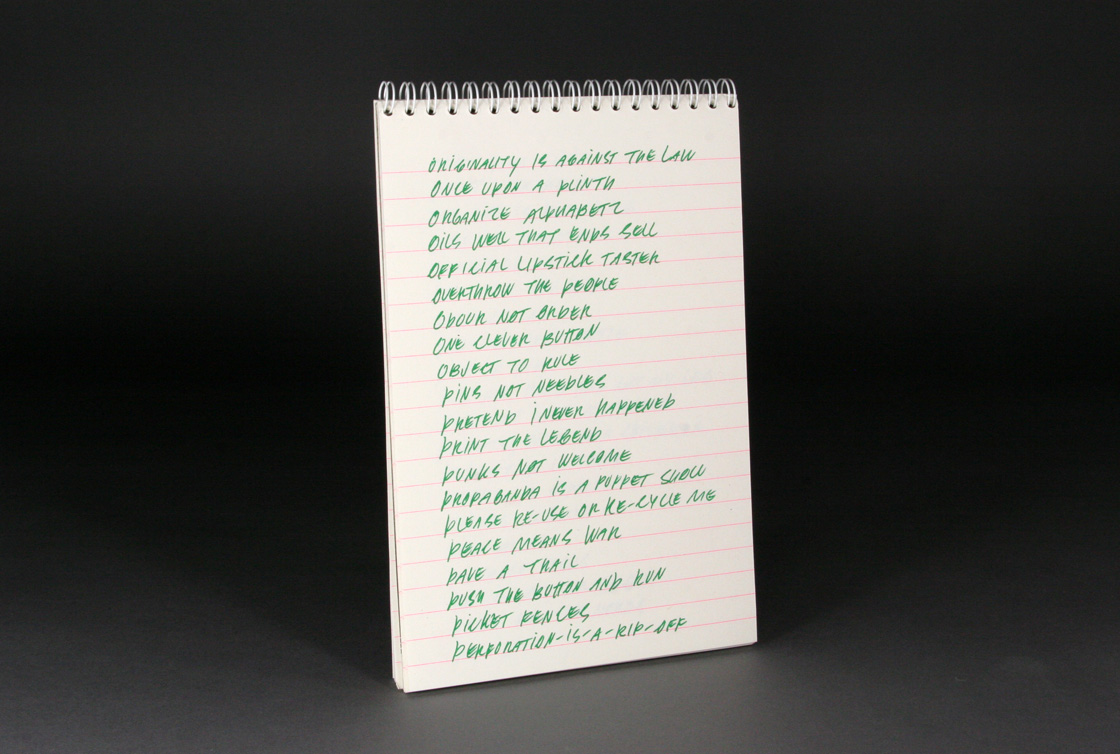 ORIGINALITY IS AGAINST THE LAW
ONCE UPON A PLINTH
ORGANIZE ALPHABETZ
OILS WELL THAT ENDS SELL
OFFICIAL LIPSTICK TASTER
OVERTHROW THE PEOPLE
ODOUR NOT ORDER
ONE CLEVER BUTTON
OBJECT TO RULE
PINS NOT NEEDLES
PRETEND I NEVER HAPPENED
PRINT THE LEGEND
PUNKS NOT WELCOME
PROPAGANDA IS A PUPPET SHOW
PLEASE RE-USE OR RE-CYCLE ME
PEACE MEANS WAR
PAVE A TRAIL
PUSH THE BUTTON AND RUN
PICKET FENCES
PERFORATION-IS-A-RIP-OFF